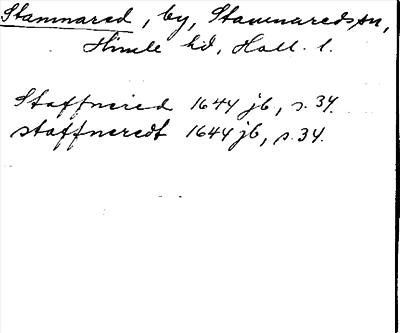 Stamnared, by, Stamnareds sn,
Himle hd, Hall. l.
Staffneried 1644 jb, s. 34.
staffneredt 1644 jb, s. 34.